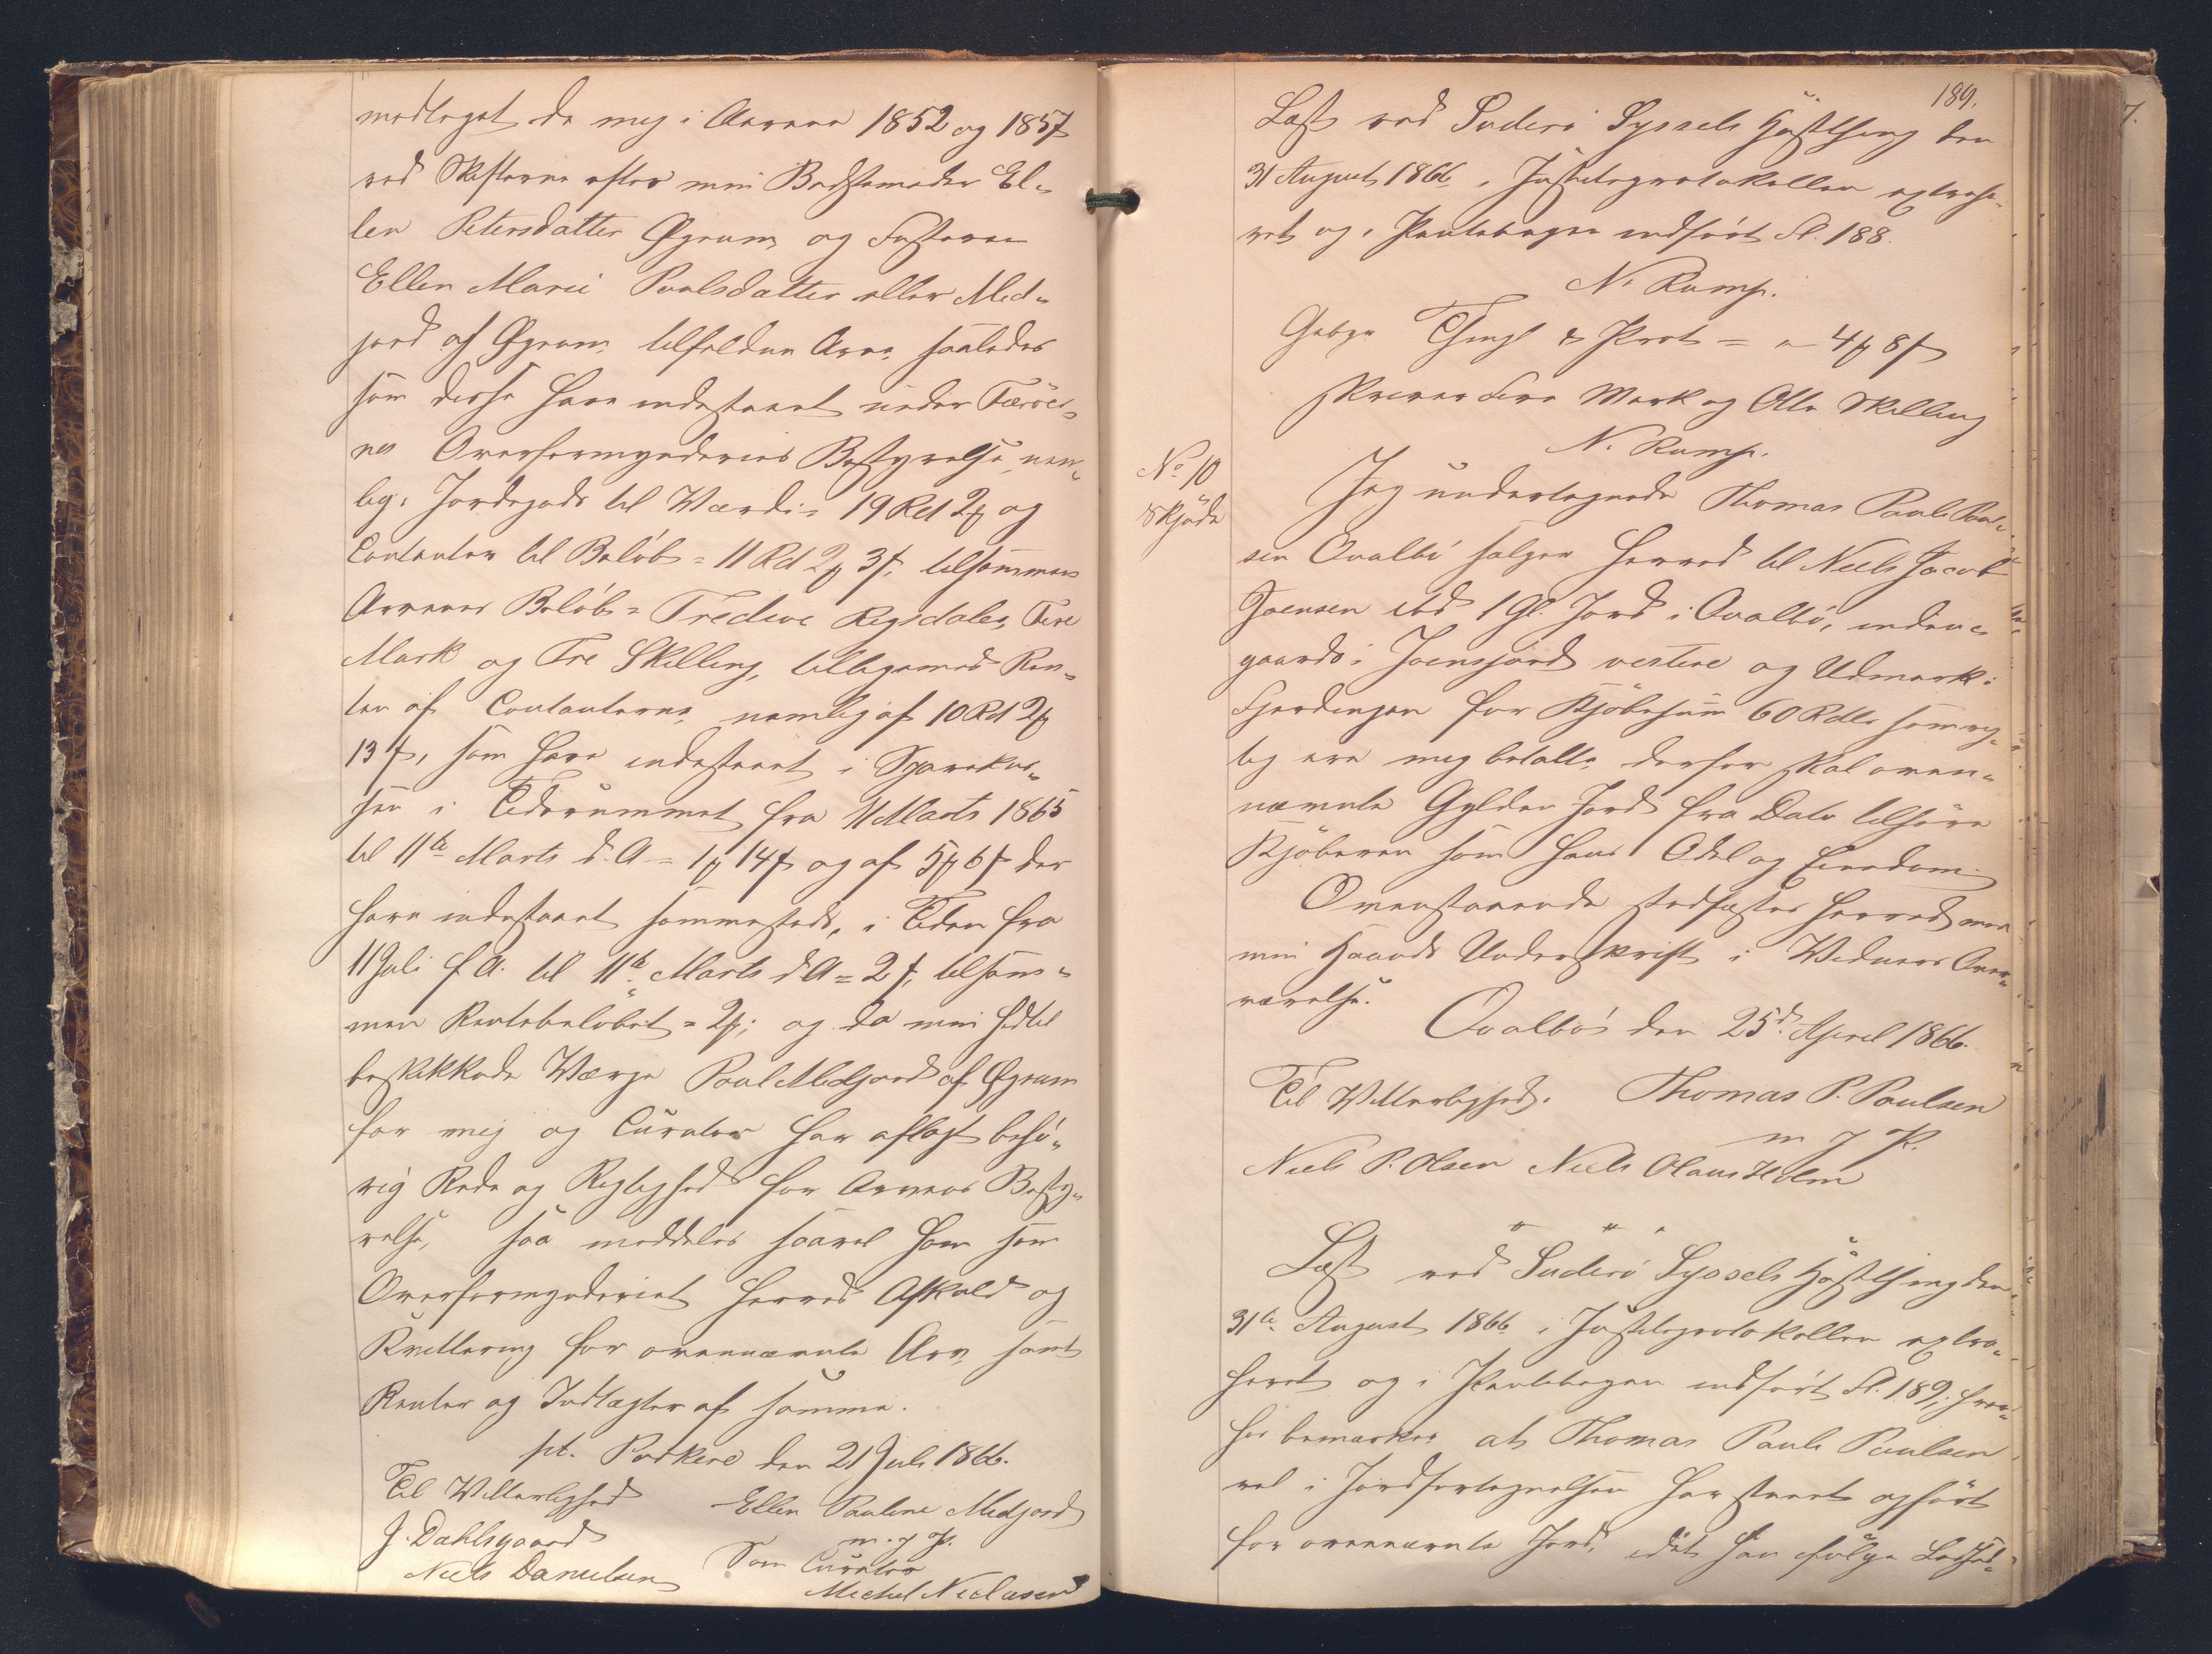 modtaget de mig i Aarene 1852 og 1857
ved Skifterne efter min Bedstemoder El-
len Petersdatter Øgrum og Fasteren
Ellen Marie Poulsdatter eller Mid-
jord af Øgrum tilfaldne Arve saaledes
som disse have indestaaet under Færöer-
nes Overformynderies Bestyrelse, nem-
lig: Jordegods til Værdi = 19 Rd 2 ß og
Contanter til Beløb = 11 Rd 2 ß 3 ß, tilsammen
Arvenes Beløb = Tredive Rigsdaler, Fire
Mark og Tre Skilling, tilligemed Ren-
ten af Contanterne, nemlig af 10 Rd 2 ß
13 ß, som have indestaaet i Sparekas-
sen i Tidsrummet fra 11 Marts 1865
til 11te Marts d. A = 1 ß 14 ß og af 5 ß 6 ß der
have indestaaet sammesteds, i Tiden fra
11 Juli f. A. til 11te Marts d. A = 2 ß, tilsam-
men Rentebeløbet = 2 ß; og da min hidtil
beskikkede Værge Poul Midjord af Øgrum
for mig og Curator har aflagt behø-
rig Rede og Rigtighed for Arvens Besty-
relse, saa meddeles saavel ham som
Overformynderiet herved Afkald og
Kvittering for ovennævnte Arv, samt
Renter og Indtægter af samme.
pt. Porkere den 21 Juli 1866.
Til Vitterlighed Ellen Pauline Midjord
J. Dahlsgaard m. f. P.
Niels Danielsen Som Curator
Michel Niclasen
189.
Læst ved Suderø Syssels Høstthing den
31 August 1866, i Justitsprotokollen extrahe-
ret og i Pantebogen indført Fl. 188.
N. Rump.
Gebyr Thingl & Prot = " 4 ß 8 ß
skriver Fire Mark og Otte Skilling
N. Rump.
No 10
Skjøde
Jeg undertegnede Thomas Pauli Poul-
sen Qvalbø sælger herved til Niels Jacob
Joensen ibd 1 Gl. Jord i Qvalbø, inden-
gaards i Joensjord vestere og Udmark i
Fjerdingen for Kjøbesum 60 Rdlr som rig-
tig ere mig betalte derfor skal oven-
nævnte Gylden Jord fra Dato tilhøre
Kjøberen som hans Odel og Eiendom.
Ovenstaaende stadfæstes herved med
min Haands Underskrift i Vidners Over-
værelse.
Qvalbø den 25d April 1866.
Til Vitterlighed. Thomas P. Poulsen
m f P.
Niels P. Olsen Niels Olaus Holm
" " "
Læst ved Suderø Syssels Høstthing den
31te August 1866 i Justitsprotokollen extra-
heret og i Pantebogen indført Fl. 189; hvor-
hos bemærkes at Thomas Pauli Poulsen
vel i Jordfortegnelsen har staaet opført
for ovennævnte Jord, idet han ifølge Lodsed-